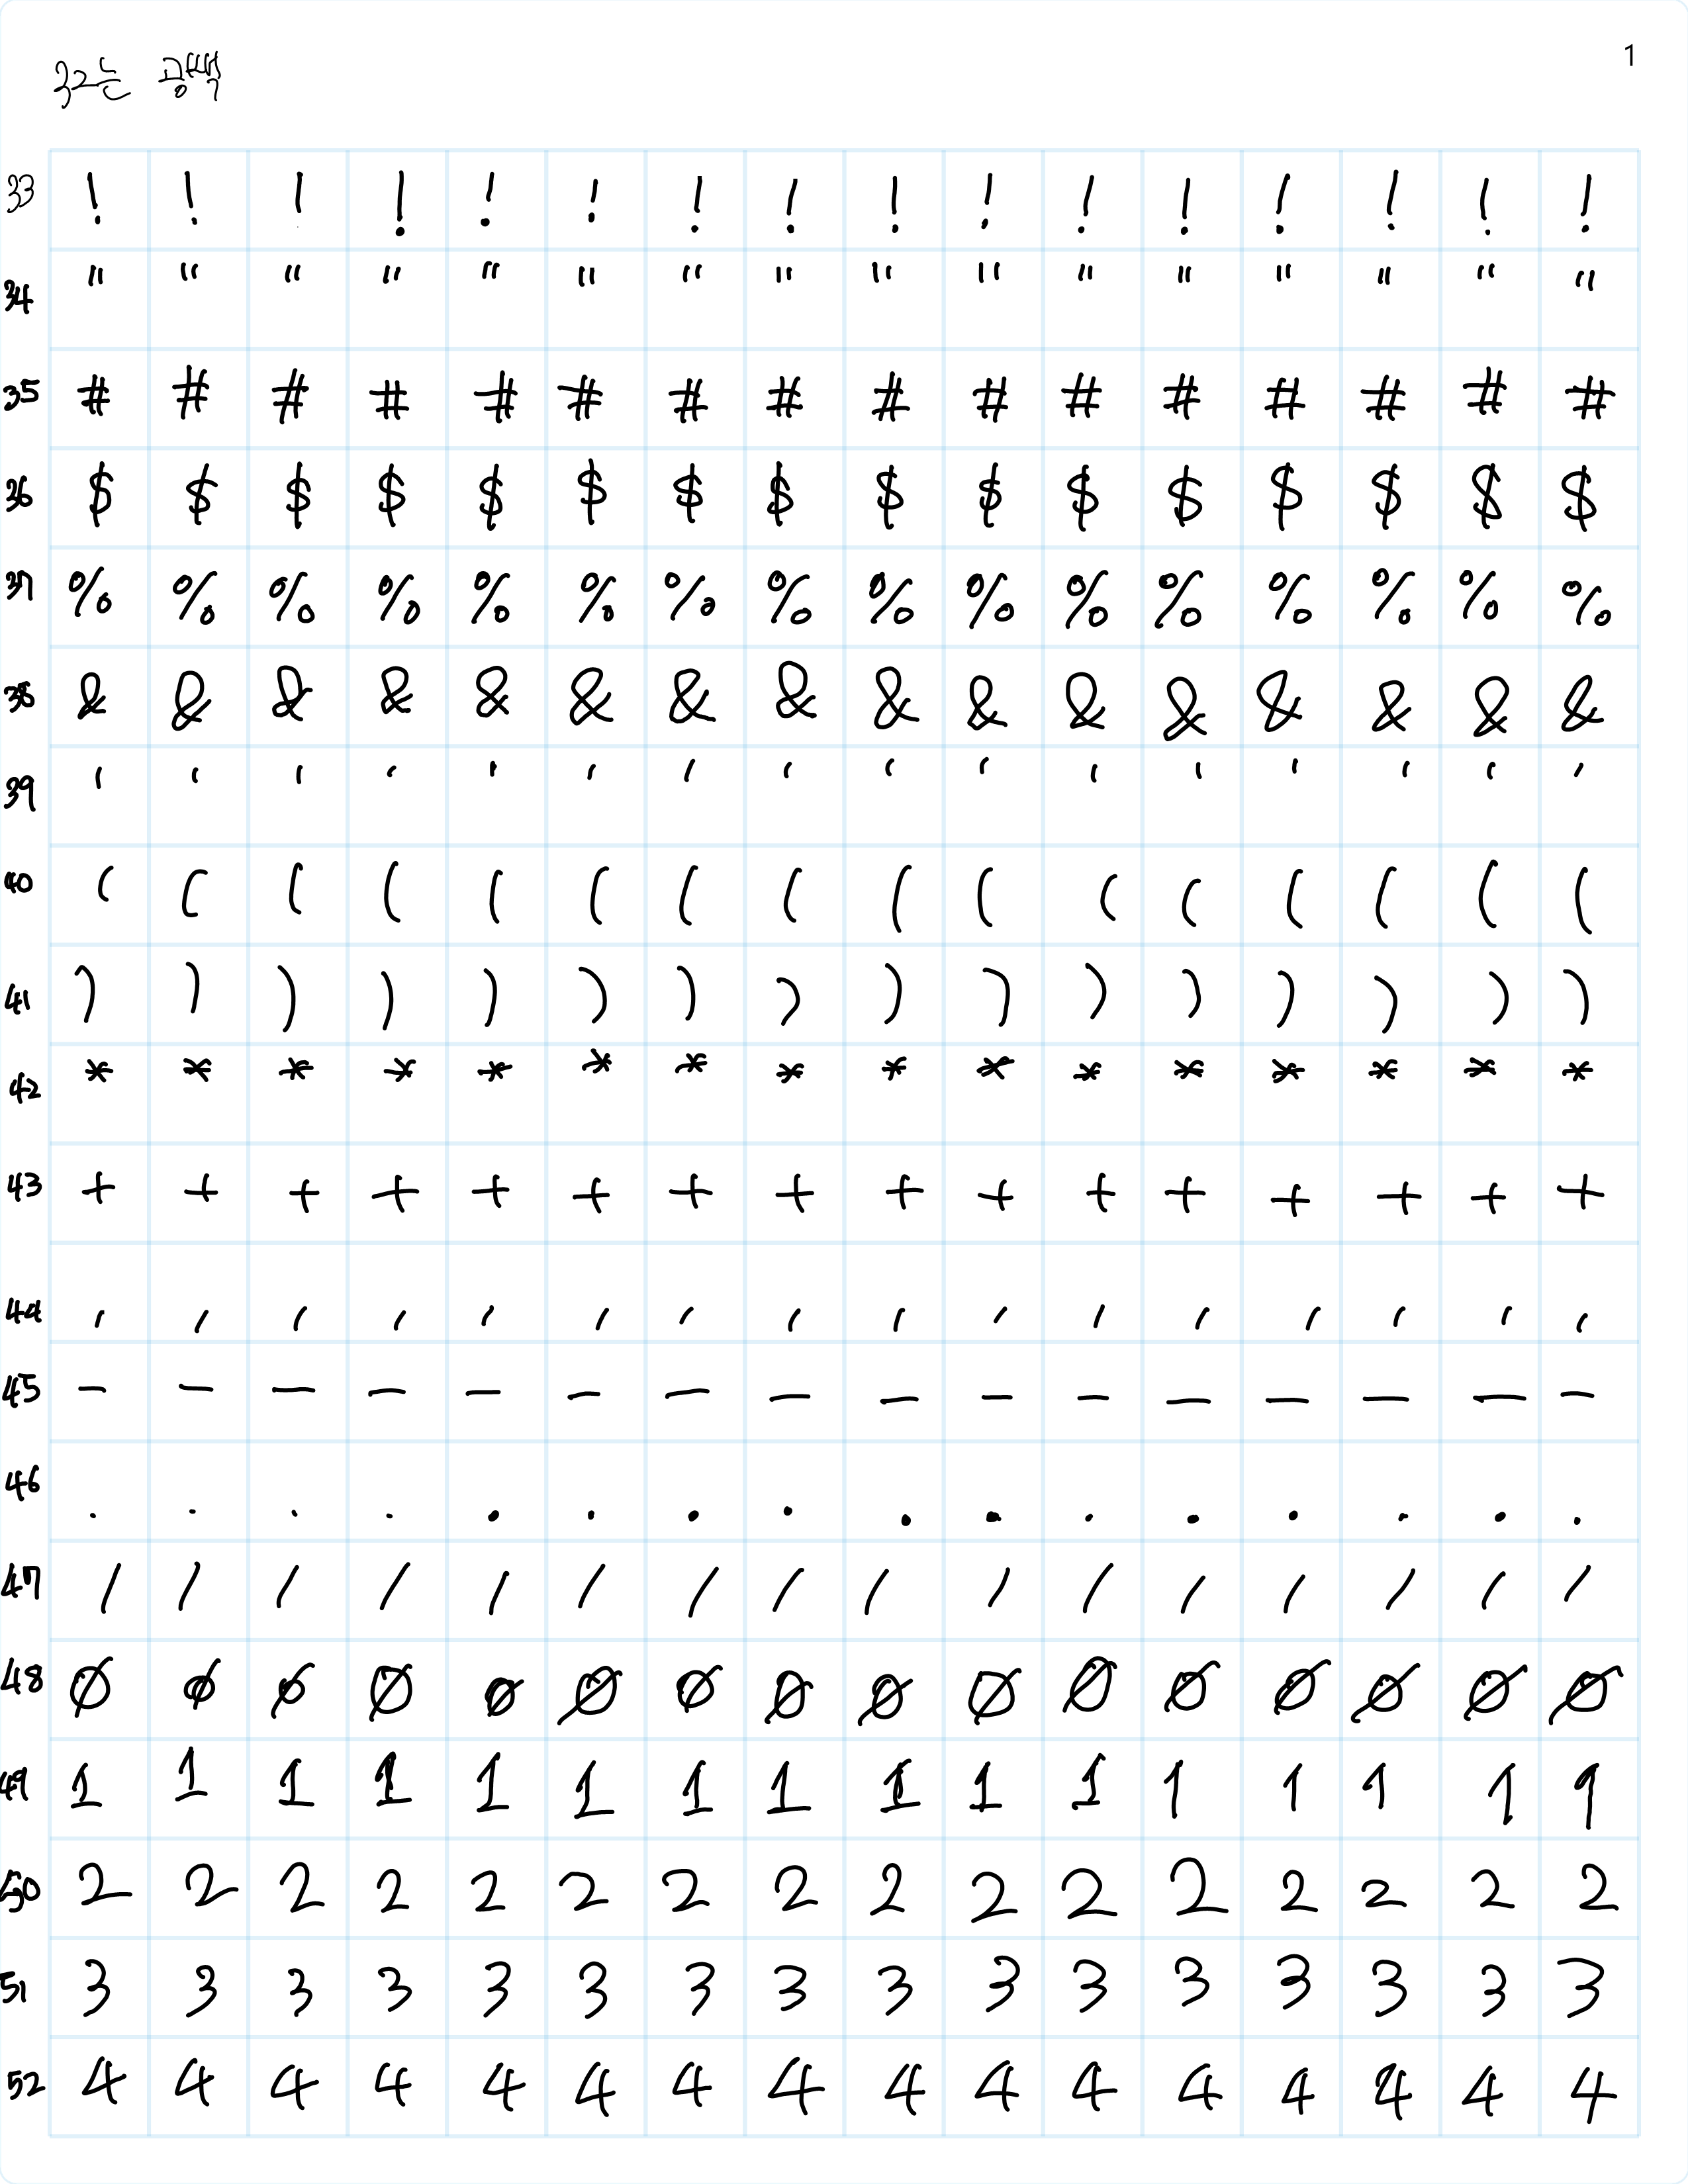 32는 공백
1
33 ! ! ! ! ! ! ! ! ! ! ! ! ! ! ! !
34 " " " " " " " " " " " " " " " "
35 # # # # # # # # # # # # # # # #
36 $ $ $ $ $ $ $ $ $ $ $ $ $ $ $ $
37 % % % % % % % % % % % % % % % %
38 & & & & & & & & & & & & & & & &
39 ' ' ' ' ' ' ' ' ' ' ' ' ' ' ' '
40 ( ( ( ( ( ( ( ( ( ( ( ( ( ( ( (
41 ) ) ) ) ) ) ) ) ) ) ) ) ) ) ) )
42 * * * * * * * * * * * * * * * *
43 + + + + + + + + + + + + + + + +
44 , , , , , , , , , , , , , , , ,
45 - - - - - - - - - - - - - - - -
46 . . . . . . . . . . . . . . . .
47 / / / / / / / / / / / / / / / /
48 0 0 0 0 0 0 0 0 0 0 0 0 0 0 0 0
49 1 1 1 1 1 1 1 1 1 1 1 1 1 1 1 1
50 2 2 2 2 2 2 2 2 2 2 2 2 2 2 2 2
51 3 3 3 3 3 3 3 3 3 3 3 3 3 3 3 3
52 4 4 4 4 4 4 4 4 4 4 4 4 4 4 4 4